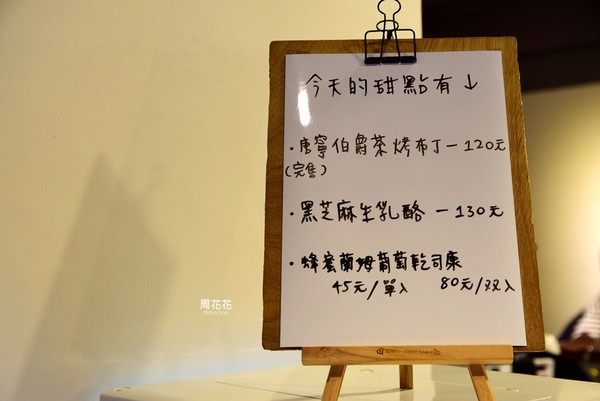 今天的甜點有↓
・唐寧伯爵茶烤布丁－120元
(完售)
・黑芝麻生乳酪 －130元
・蜂蜜蘭姆葡萄乾司康
45元/單入 80元/双入
周花花